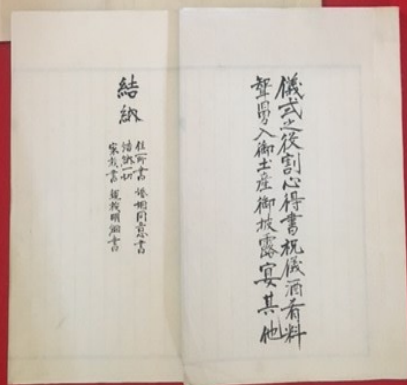 儀式之役割心得書祝儀酒肴料
聟舅入御土産御披露宴其他
結納
住所書 婚姻同意書
一切
家族書 親族明細書